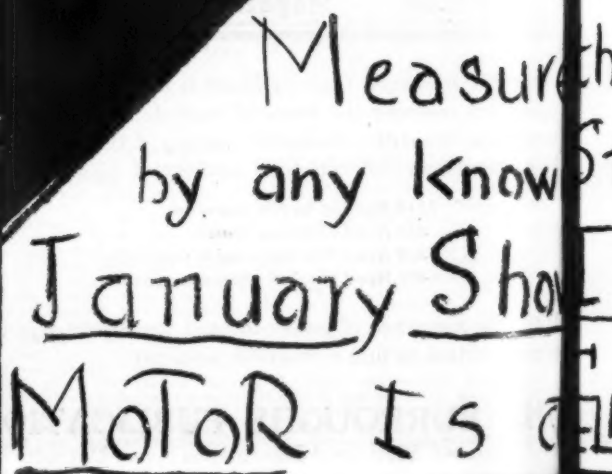 Measure
by any know
January Show
MOTOR IS